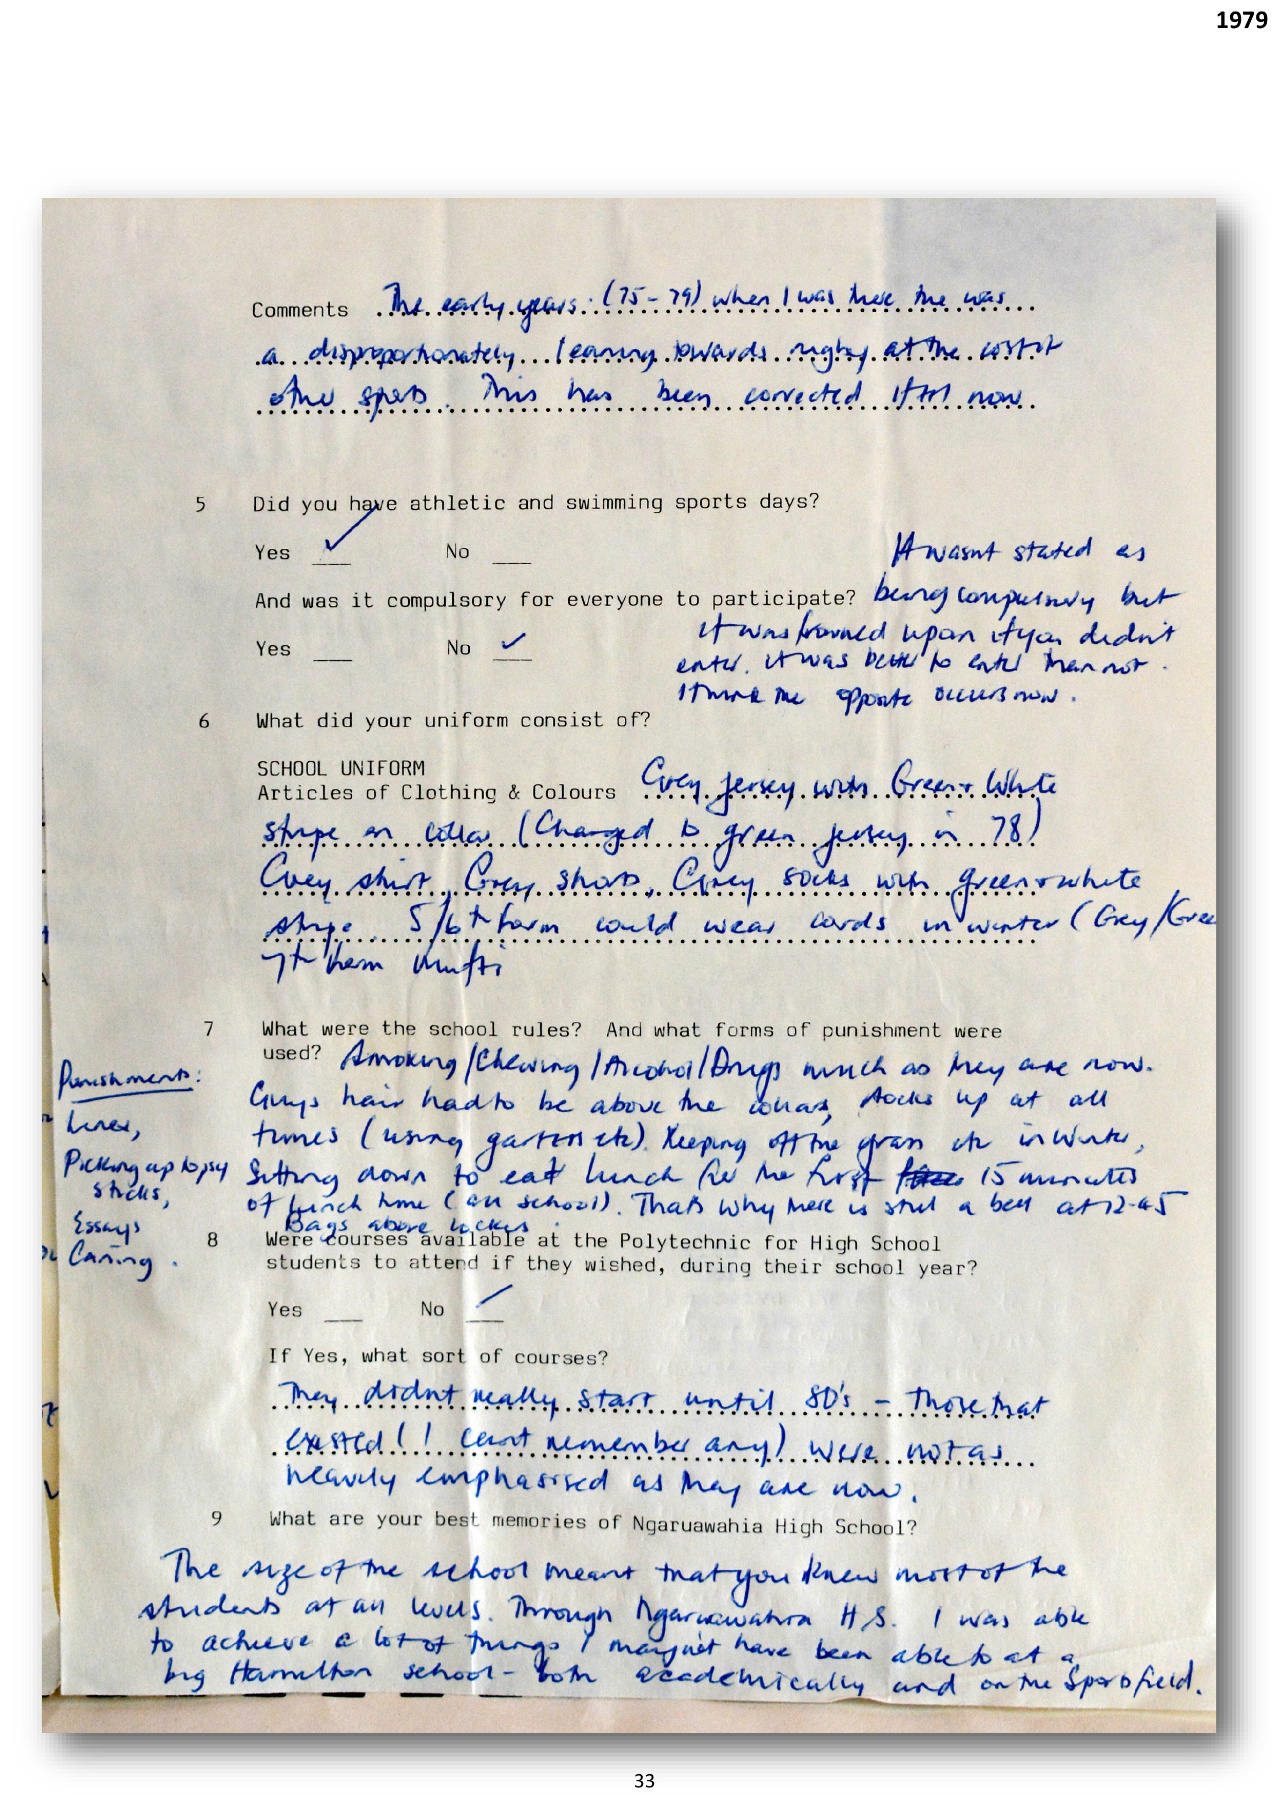 1979
Comments The early years (75-79) when I was there the was
a disproportionately leaning towards rugby at the cost of
other sports. This has been corrected now
5 Did you have athletic and swimming sports days?
Yes ✓ No
It wasnt stated as
And was it compulsory for everyone to participate? being compulsory but
it was frowned upon if you didn't
Yes No ✓
enter. It was better to enter than not.
I think the opposite occurs now.
6 What did your uniform consist of?
SCHOOL UNIFORM
Articles of Clothing & Colours Grey jersey with Green + White
stripe on collar (Changed to green jersey in 78)
Grey shirt, Grey shorts, Grey socks with green + white
stripe. 5/6th form could wear cords in winter (Grey/Gree
7th form Mufti
7 What were the school rules? And what forms of punishment were
used? Smoking/Chewing/Alcohol/Drugs much as they are now.
Guys hair had to be above the collar, socks up at all
times (using garters etc). Keeping off the grass etc in Winter,
Sitting down to eat lunch for the first 15 minutes
of lunch time (all school). Thats why there is still a bell at 12-45
Bags above lockers.
Punishments:
Lines,
Picking up sticks,
Essays
Caning.
8 Were courses available at the Polytechnic for High School
students to attend if they wished, during their school year?
Yes No ✓
If Yes, what sort of courses?
They didnt really start until 80's - Those that
existed (I cant remember any) were not as
heavily emphasised as they are now.
9 What are your best memories of Ngaruawahia High School?
The size of the school meant that you knew most of the
students at all levels. Through Ngaruawahia H.S. I was able
to achieve a lot of things I may not have been able to at a
big Hamilton school - both academically and on the Sportsfield.
33